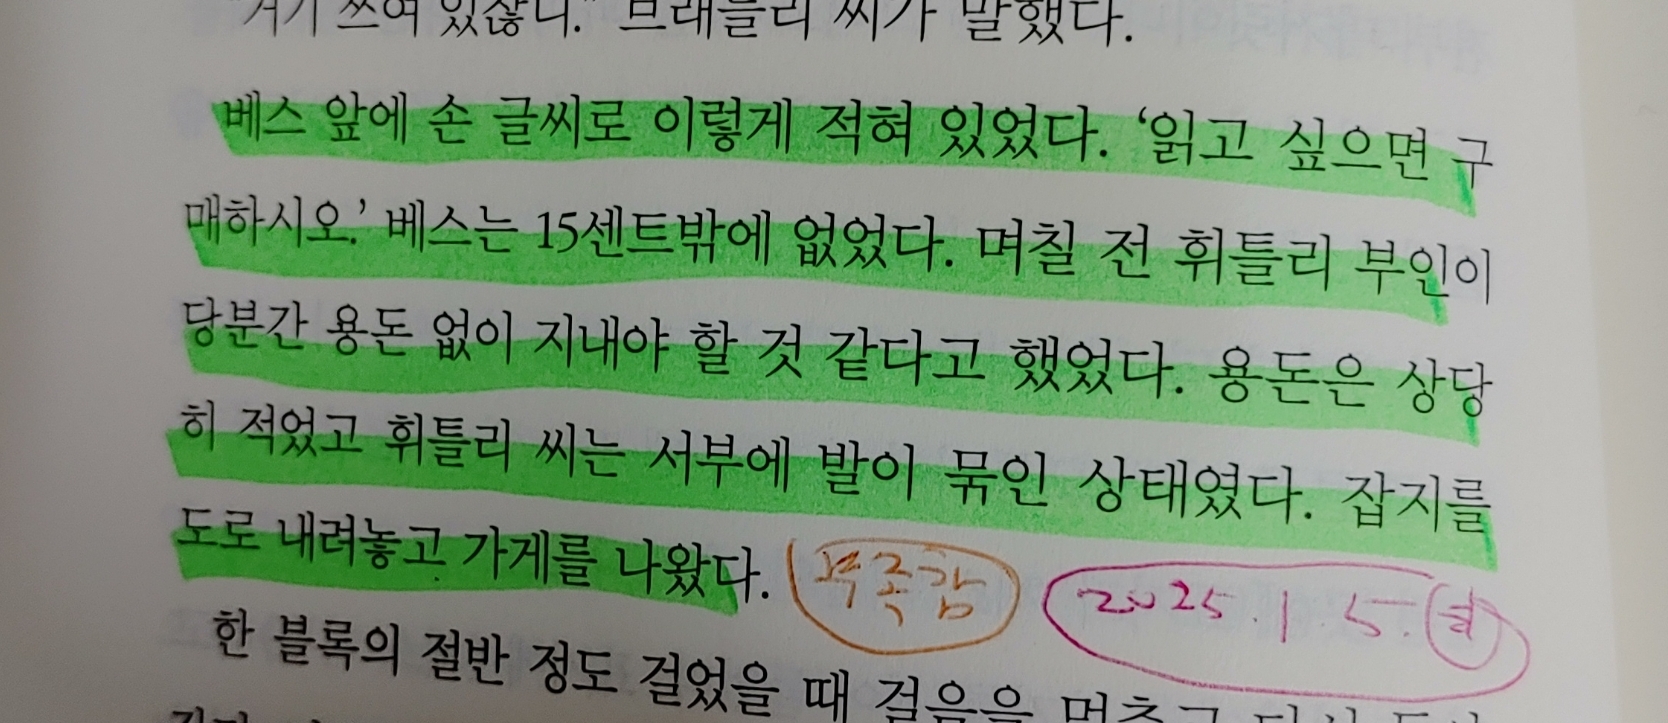 "거기 쓰여 있잖니." 브래들리 씨가 말했다.
베스 앞에 손 글씨로 이렇게 적혀 있었다. ‘읽고 싶으면 구
매하시오.’ 베스는 15센트밖에 없었다. 며칠 전 휘틀리 부인이
당분간 용돈 없이 지내야 할 것 같다고 했었다. 용돈은 상당
히 적었고 휘틀리 씨는 서부에 발이 묶인 상태였다. 잡지를
도로 내려놓고 가게를 나왔다. 부족감 2025. 1. 5.
한 블록의 절반 정도 걸었을 때 걸음을 멈추고 다시